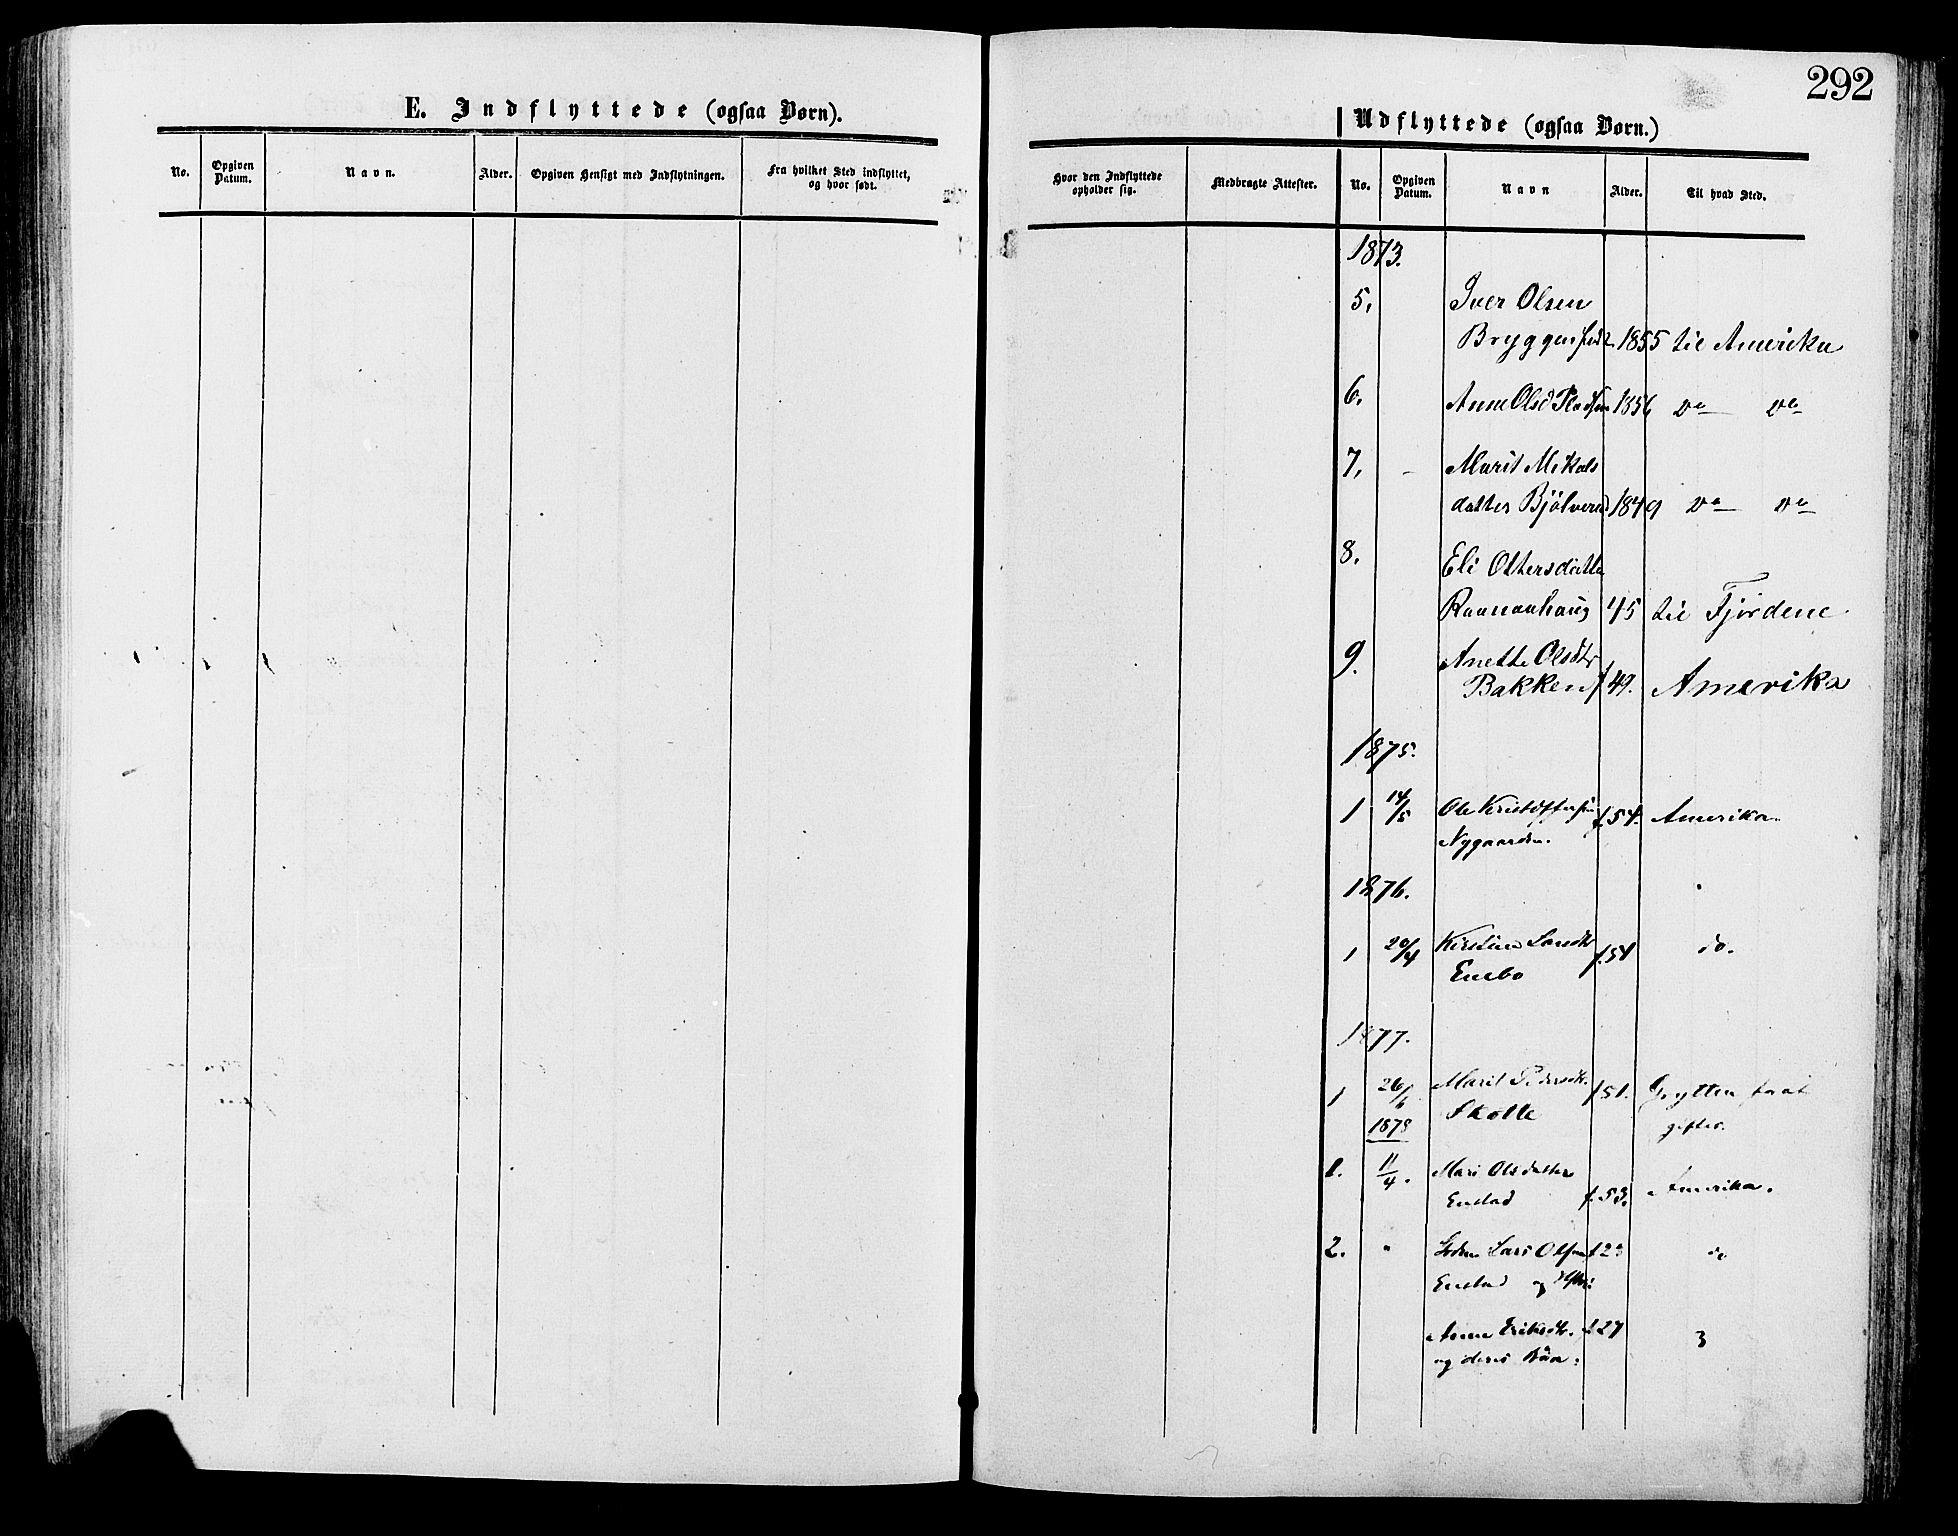 292
E. Indflyttede (ogsaa Børn).
No. Opgiven Datum. Navn. Alder. Opgiven Hensigt med Indflytningen. Fra hvilket Sted indflyttet, og hvor født.
Udflyttede (ogsaa Børn.)
Hvor den Indflyttede opholder sig. Medbragte Attester. No. Opgiven Datum. Navn Alder. Til hvad Sted.
1873.
5. Iver Olsen
1855 til Amerika
6. Anne Olsd 1856 Do Do
7. Marit Mikals
datter 1849 Do Do
8. Eli Ottersdatter
45 til Fjordene
9. Anette Olsdtr
Bakken f 49. Amerika
1875.
1 14/5 Ole f. 54. Amerika.
Nygaarden.
1876.
1 20/4 Larsdtr f. 54 do.
Enebo
1877.
1 26/6 Marit Pedersdtr. f 51. Grytten
Skotte gifter.
1878
1. 11/4. Mari Olsdatter
Enstad f. 53. Amerika.
2. " Lars Olsen f 23 do
Enstad og
Anna Eriksdtr. f 27 3
og deres